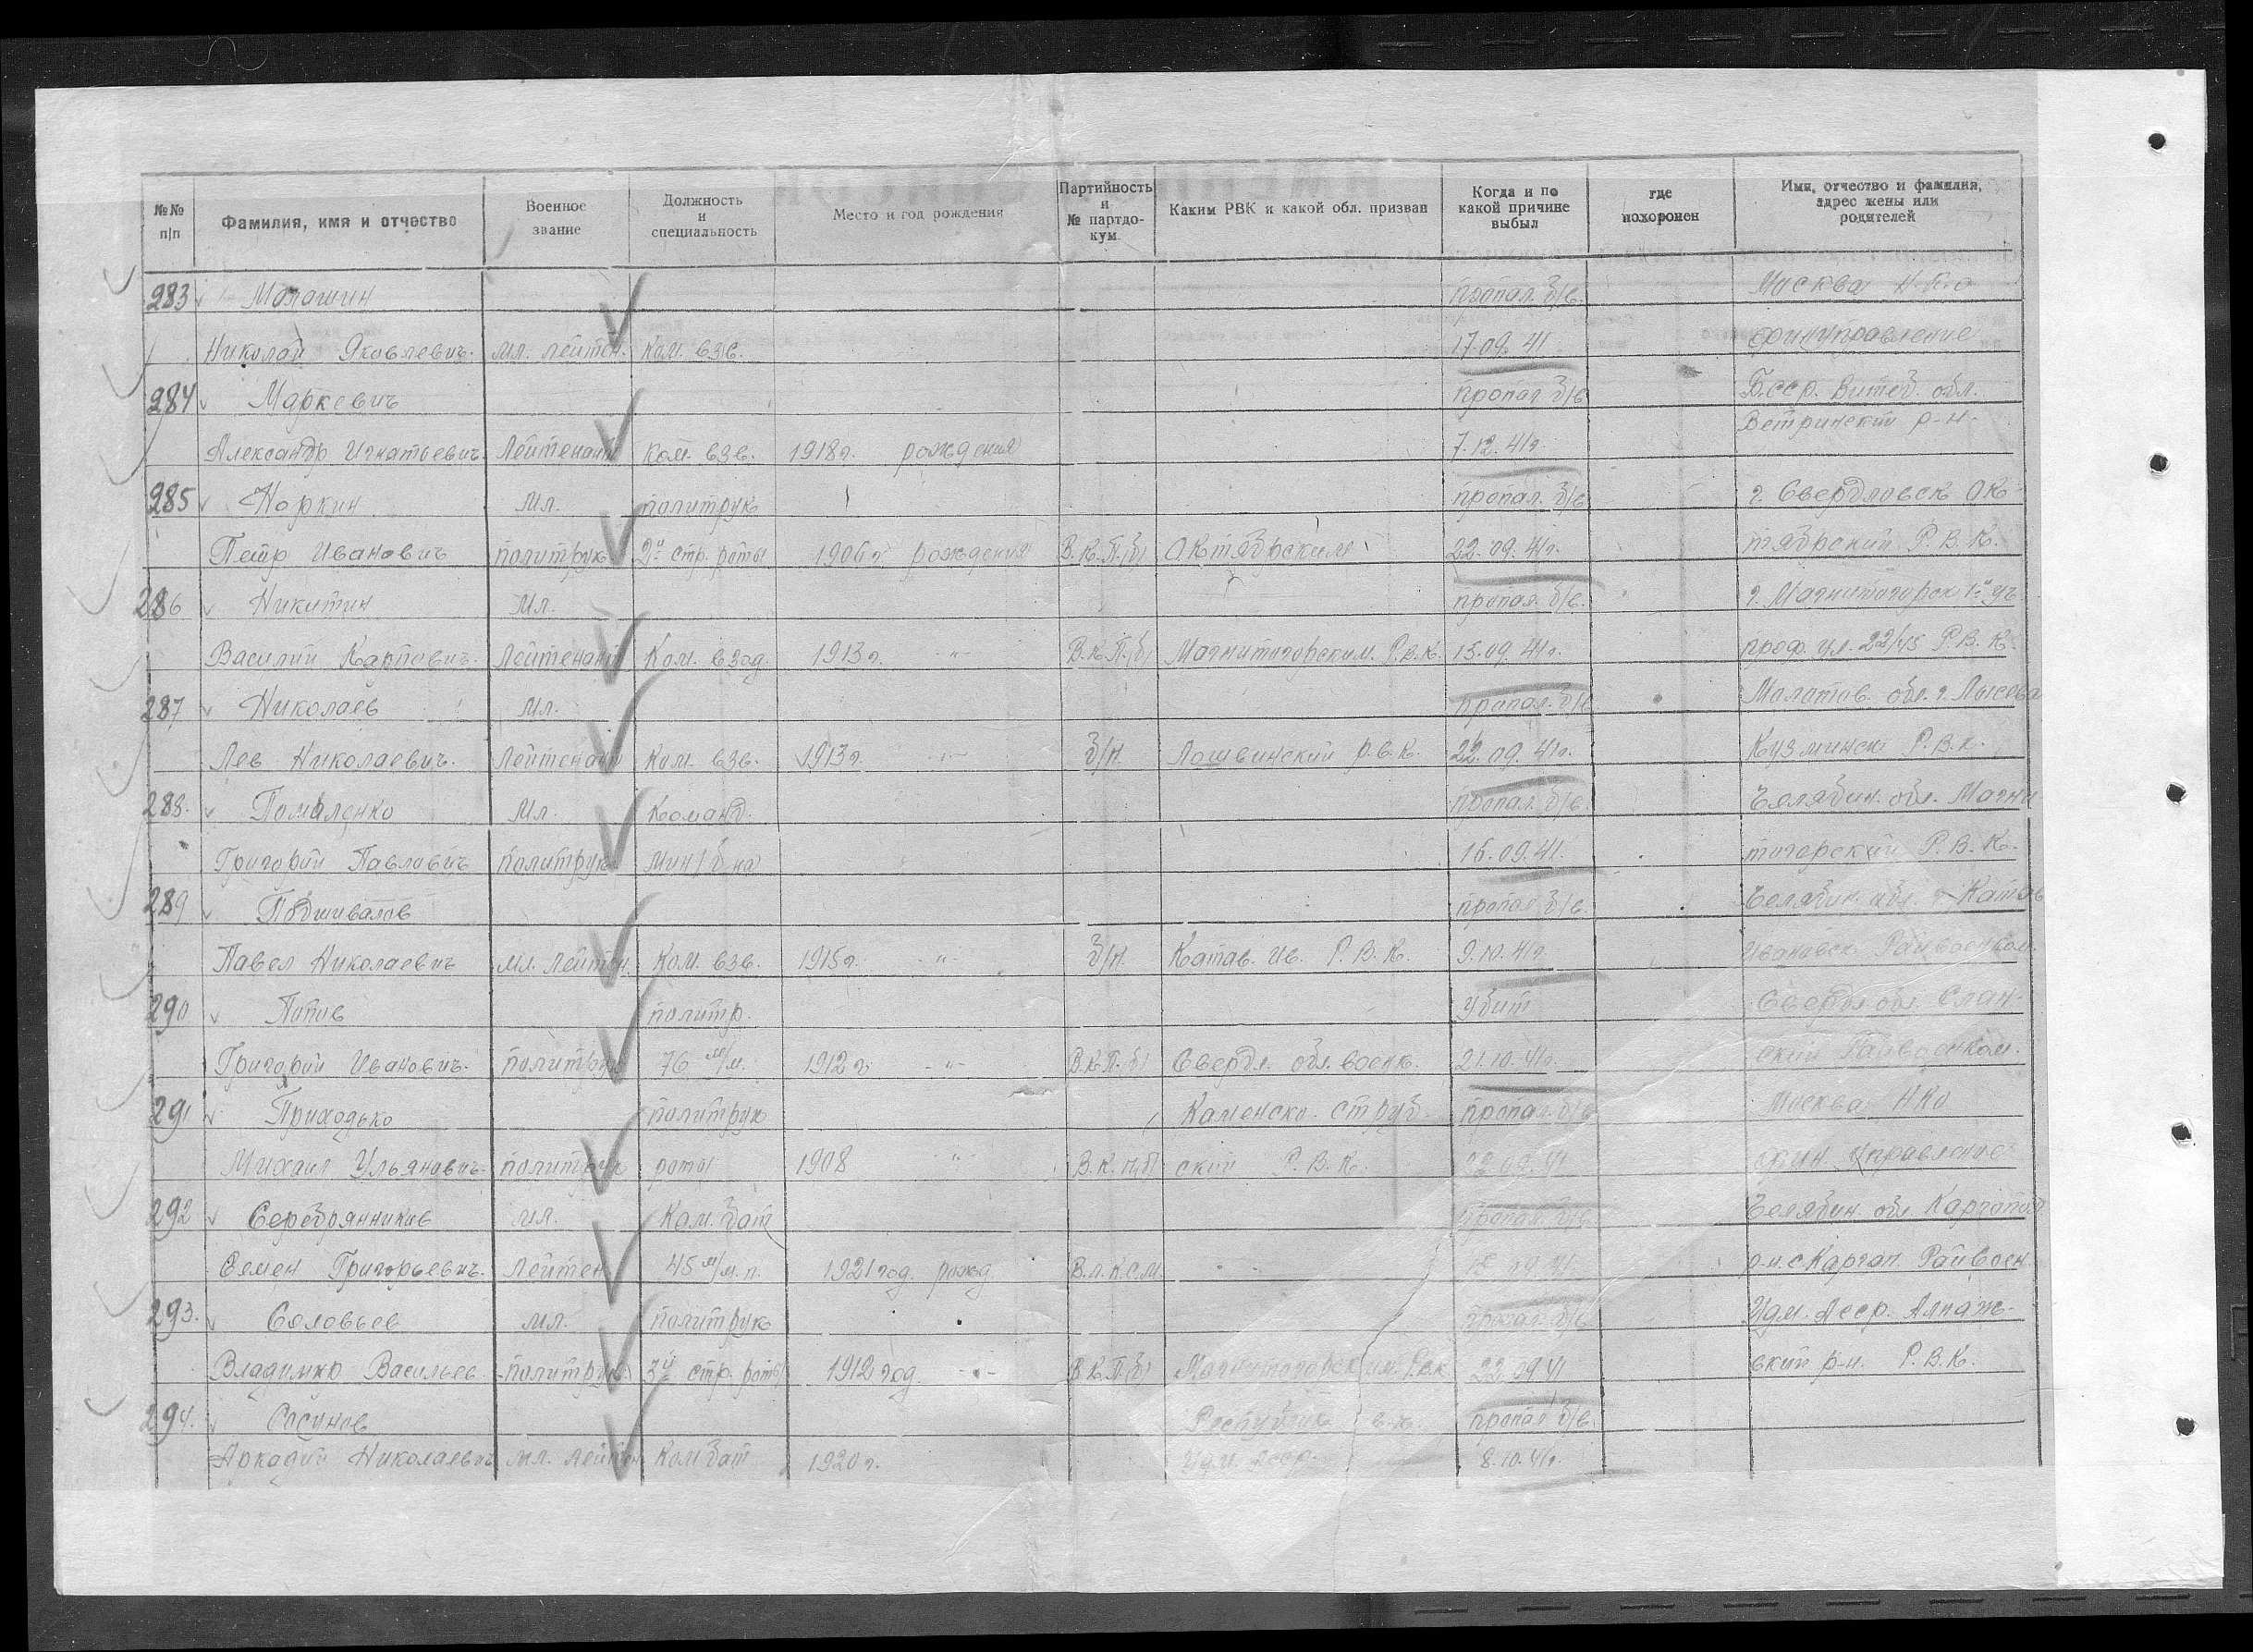 №№ п/п Фамилия, имя и отчество Военное звание Должность и специальность Место и год рождения Партийность и № партдокум. Каким РВК и какой обл. призван Когда и по какой причине выбыл где похоронен Имя, отчество и фамилия, адрес жены или родителей
283 Малашин пропал. б/в. Москва
Николай Яковлевич. мл. лейтен. ком. взв. 17.09.41 финуправление
284 Маркевич пропал б/в Бсср. Витеб. обл.
Ветринский р-н.
Александр Игнатьевич. Лейтенант ком. взв. 1918г. рождения 7.12.41г.
285 Норкин мл. политрук пропал. б/в г. Свердловск Ок
Петр Иванович политрук 2й стр. роты 1906г рождения В.К.П./б/ Октябрьским 22.09.41г. тябрский Р.В.К.
286 Никитин мл. пропал. б/в. г. Магнитогорск 1й уч.
Василий Карпович. Лейтенант Ком. взод. 1913г. -"- В.К.П./б/ Магнитогорским. Р.В.К. 15.09.41г. проф. ул. 22/45 Р.В.К.
287 Николаев мл. пропал. б/в Молотов. обл. г. Лысьва
Лев Николаевич. Лейтенант Ком. взв. 1913г. -"- б/п. Лошвинский Р.В.К. 22.09.41г. Кузминск Р.В.К.
288. мл. Команд. пропал. б/в. Челябин. обл. Магни
Григорий Павлович политрук мин/б-на 16.09.41. тогорский Р.В.К.
289 Подшивалов пропал б/в. Челябин. обл. г. Катав
Павел Николаевич мл. лейтен. Ком. взв. 1915г. -"- б/п. Катав. Ив. Р.В.К. 9.10.41г. Ивановск. Райвоенком.
290 Попов политр. Убит Свердл. обл.
Григорий Иванович. политрук 76 м/м. 1912г. -"- В.К.П./б/ Свердл. обл. военк. 21.10.41г. ский Райвоенком.
291 Приходько политрук Каменско. струб пропал. б/в Москва НКО
Михаил Ульянович. политрук роты 1908 -"- В.К.П/б/ ский Р.В.К. 09.41 фин. управление
292 Серебрянников мл. Ком. бат пропал. б/в. Челябин. обл. Каргопол
Семен Григорьевич. Лейтен. 45 м/м. п. 1921год. рожд В.Л.К.С.М. 09.41 р-н. с Каргап. Райвоен
293. Соловьев мл. политрук пропал. б/в Удм. Асср. Алнаш-
Владимир Васильев политрук. 3й стр. роты 1912 год. -"- В.К.П./б/ Магнитогорским. Рвк 22.09 41 ский р-н. Р.В.К.
294. Сосунов Республик в.к. пропал б/в.
Аркадий Николаевич мл. лейтен Комбат 1920г. Удм. Асср. 8.10.41г.